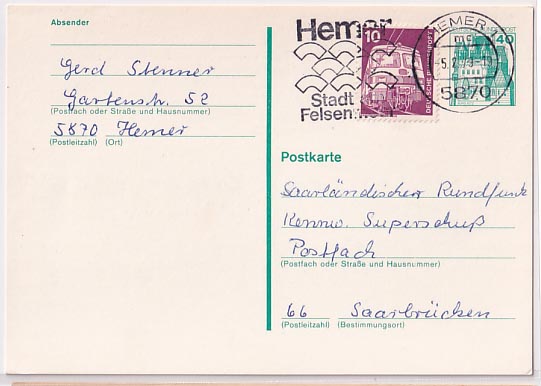 Absender
Gerd Stenner
Gartenstr. 52
(Postfach oder Straße und Hausnummer)
5870 Hemer
(Postleitzahl) (Ort)
Hemer
Stadt
Felsen
10
DEUTSCHE BUNDESPOST
HEMER 1
40
5870
Postkarte
Saarländischer Rundfunk
Kennw. Superschuß
Postfach
(Postfach oder Straße und Hausnummer)
66 Saarbrücken
(Postleitzahl) (Bestimmungsort)